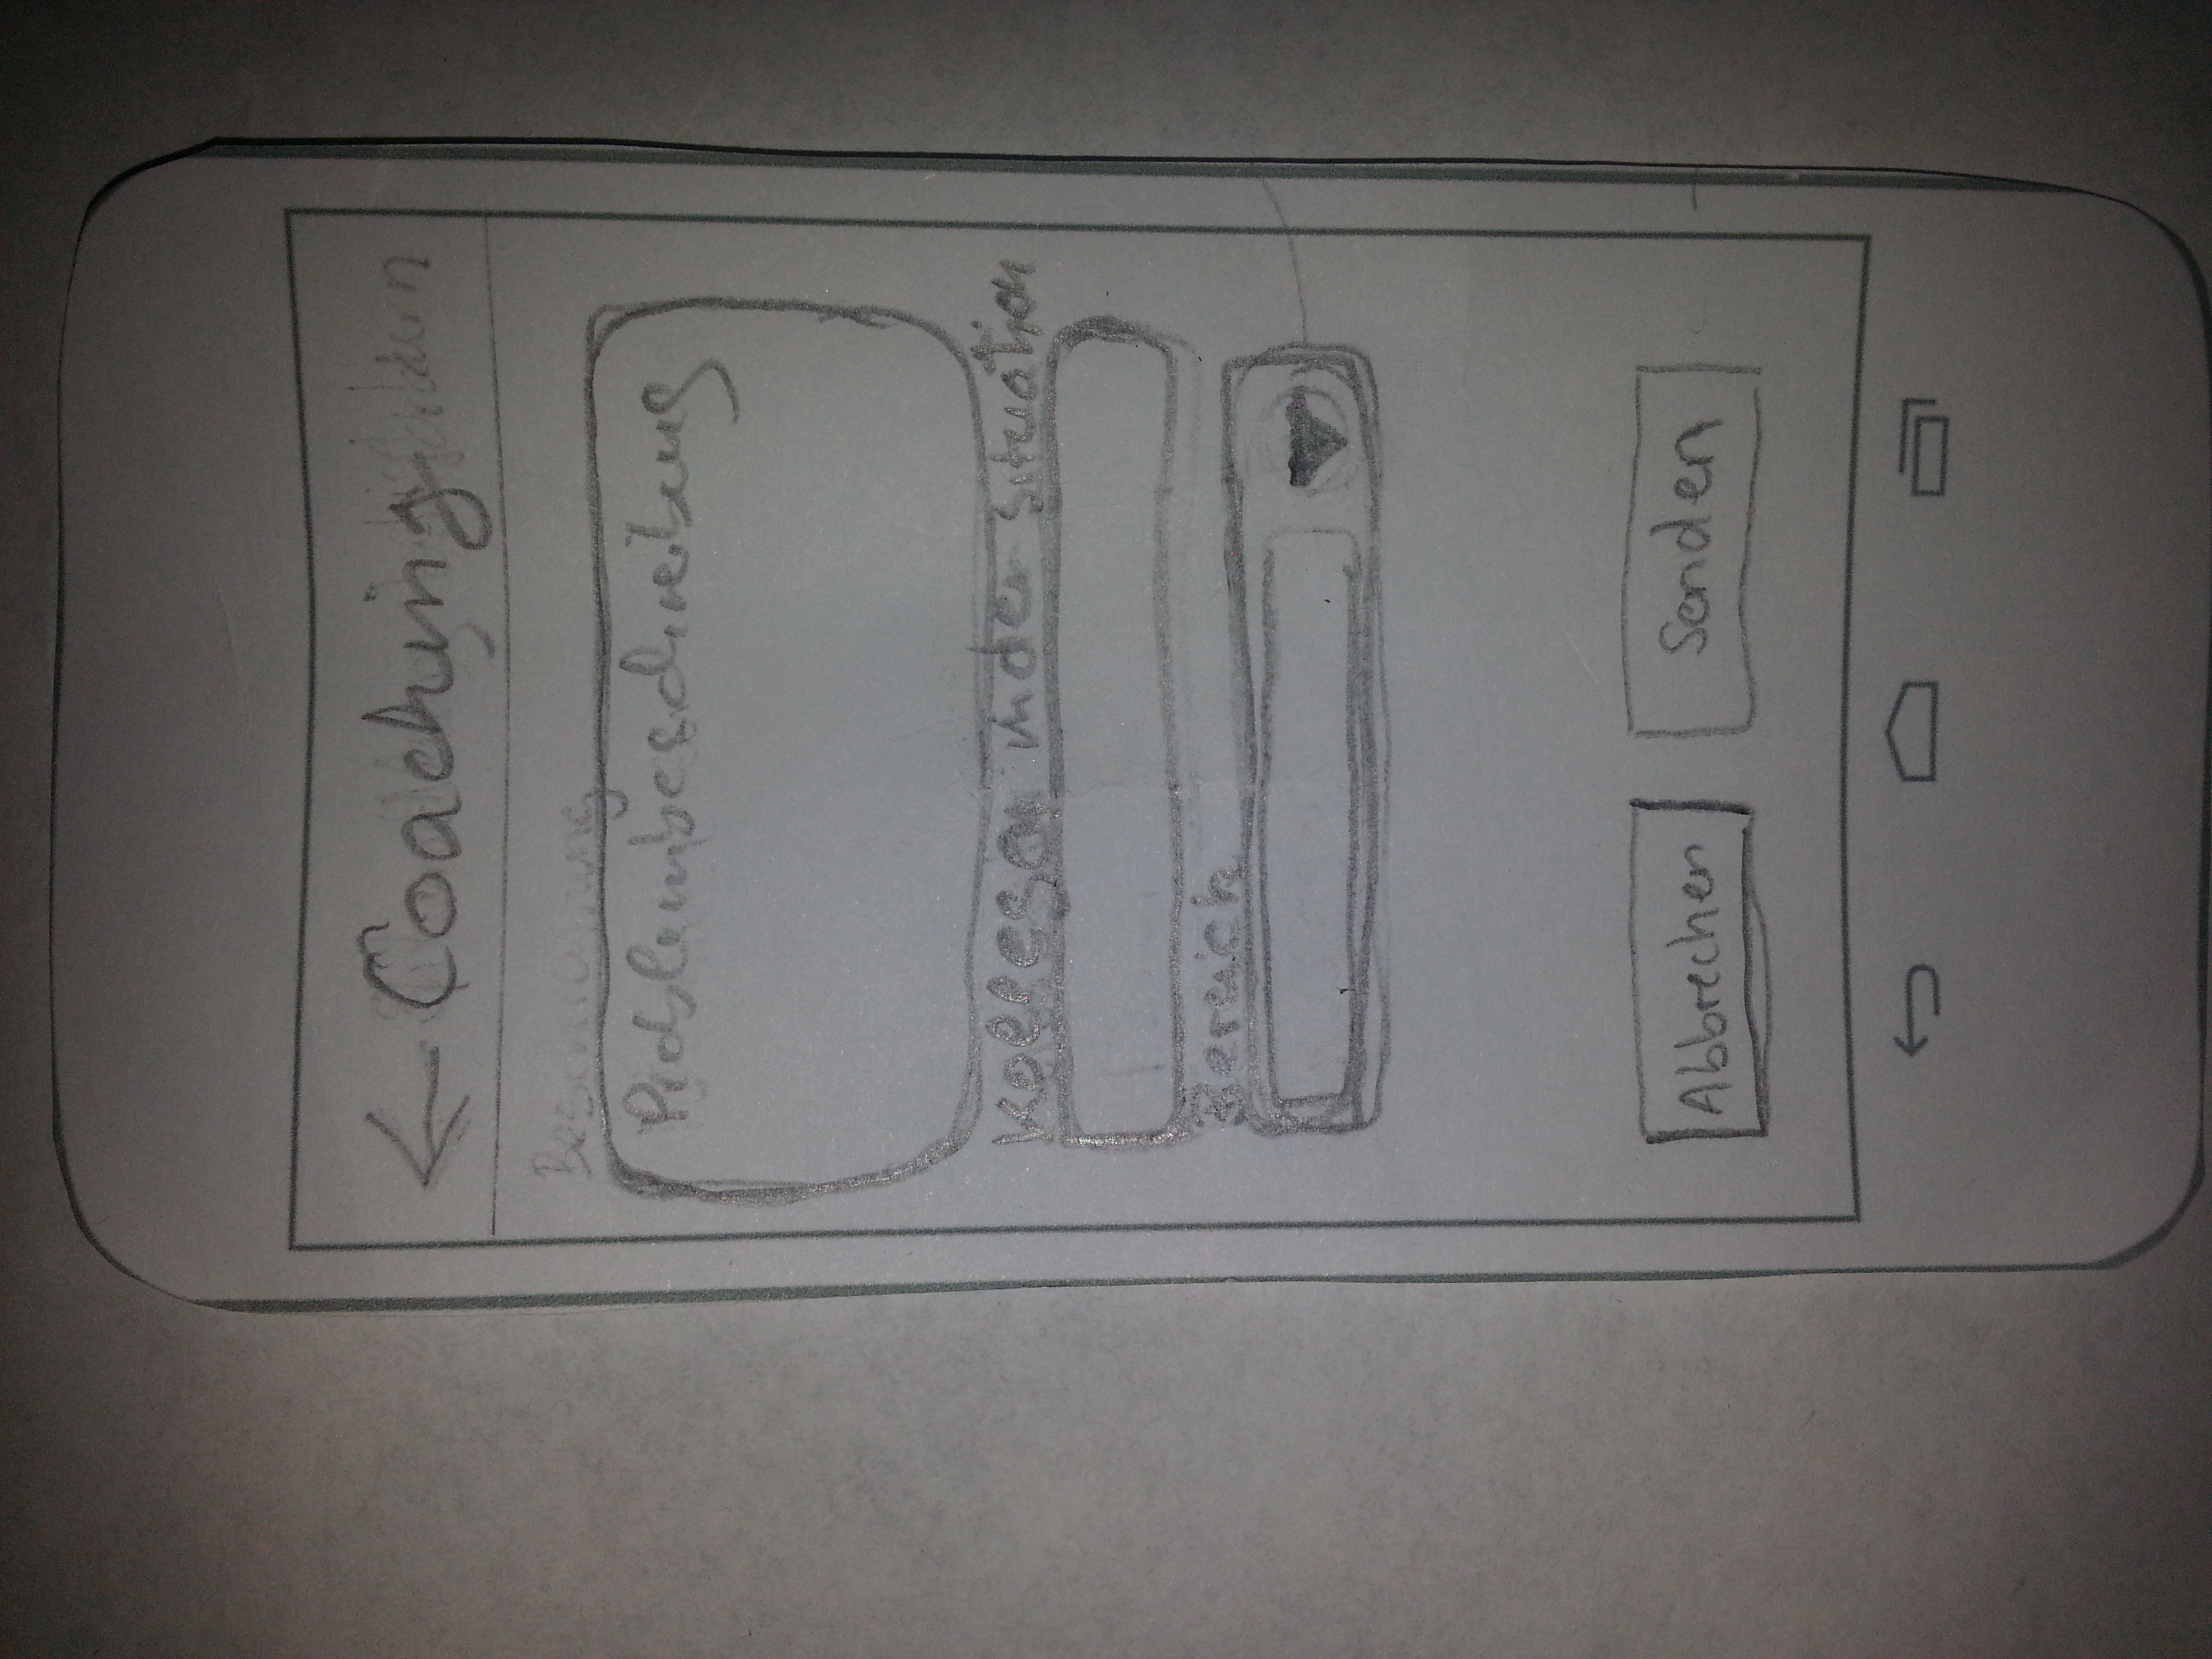 Coaching
Problembeschreibung
Kollegen in der Situation
Bereich
Abbrechen
Senden